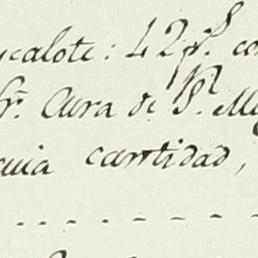 calote: 42 p.s co
Sr. Cura de S.n M
uia cantidad,